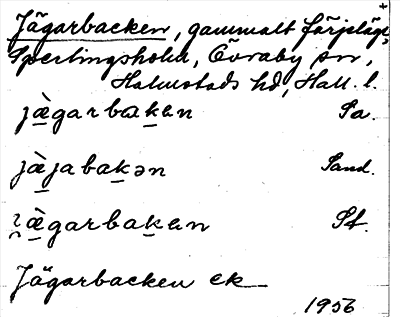 Jägarbacken, gammalt färjeläge,
Sperlingsholm, Övraby sn,
Halmstads hd, Hall. l.
jä̀garbakan Pa.
jä̀jabakən Sand.
ɿä̀garbakan St.
Jägarbacken ek
1956